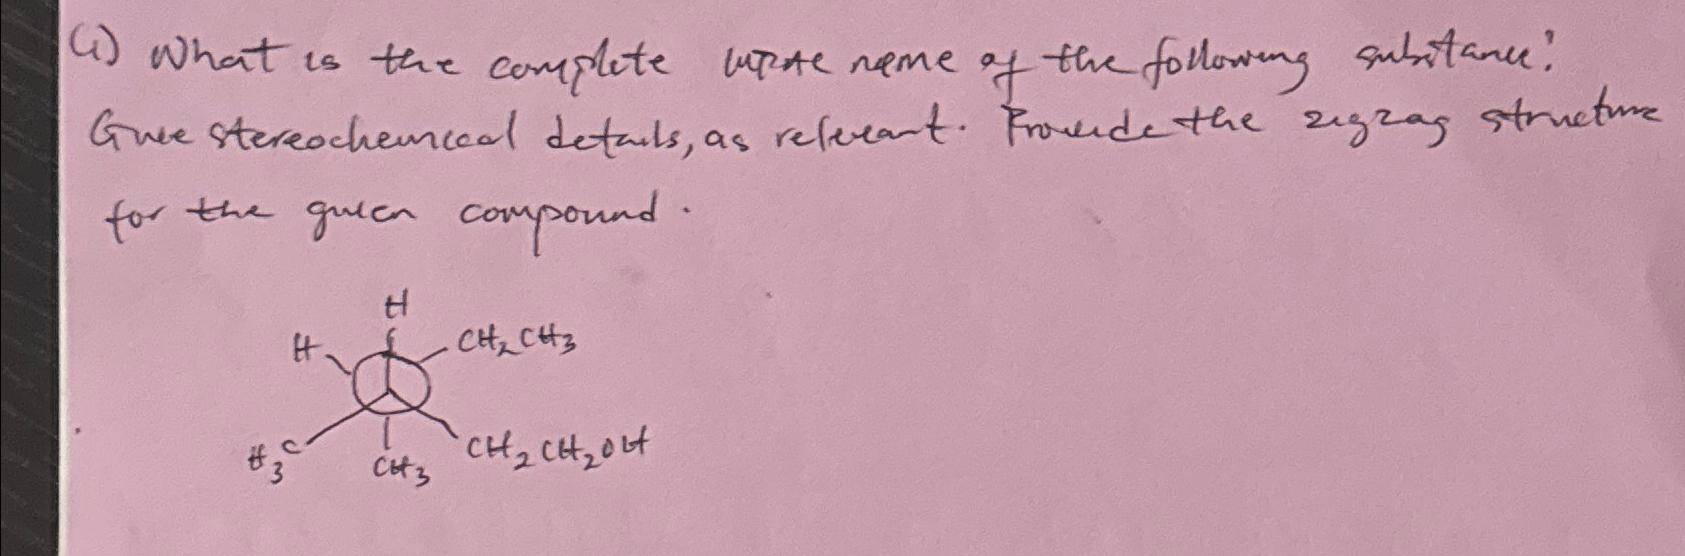 (i) What is the complete IUPAC name of the following substance?
Give stereochemical details, as relevant. Provide the zigzag structure
for the given compound.
H
H CH2CH3
H3C CH3 CH2CH2OH